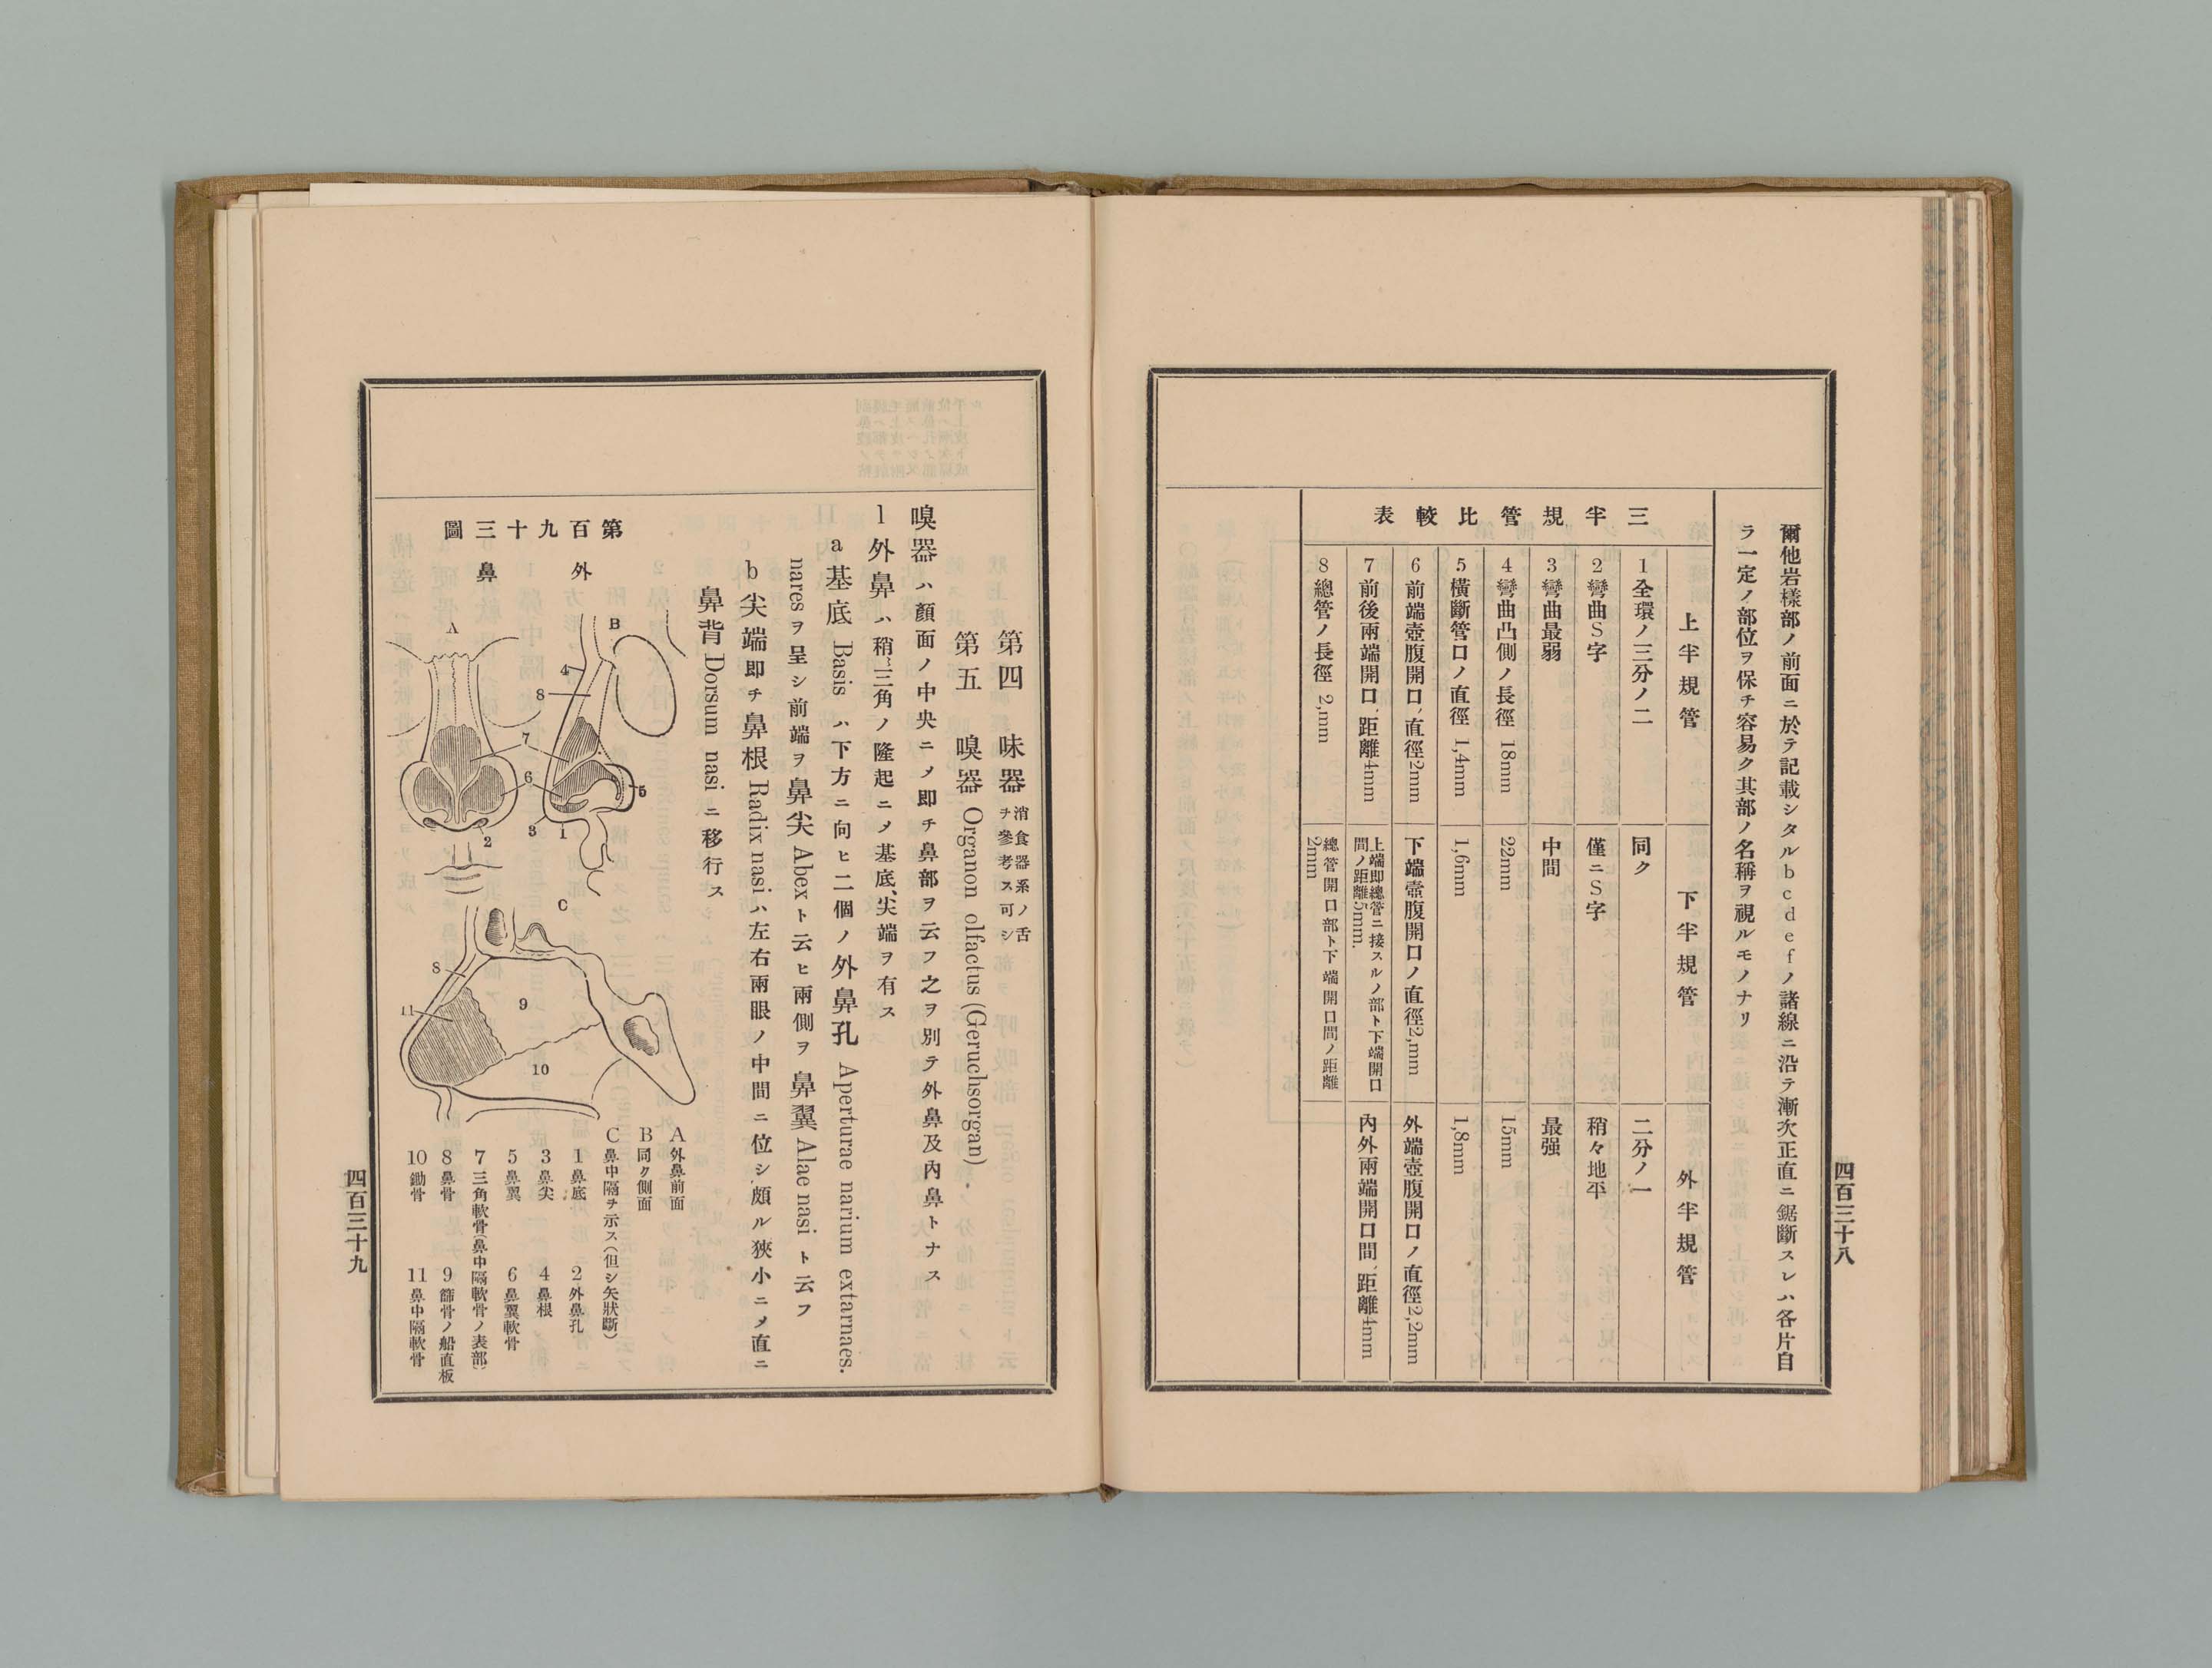 爾他岩樣部ノ前面ニ於テ記載シタルb c d e fノ諸線ニ沿テ漸次正直ニ鋸斷スレハ各片自
ラ一定ノ部位ヲ保チ容易ク其部ノ名稱ヲ視ルモノナリ
三半規管比較表
上半規管
下半規管
外半規管
1全環ノ三分ノ二
同ク
二分ノ一
2彎曲S字
僅ニS字
稍々地平
3彎曲最弱
中間
最强
4彎曲凸側ノ長徑 18mm
22mm
15mm
5橫斷管口ノ直徑 1,4mm
1,6mm
1,8mm
6前端壺腹開口ノ直徑2mm
下端壺腹開口ノ直徑2,mm
外端壺腹開口ノ直徑2,2mm
7前後兩端開口ノ距離4mm
上端即總管ニ接スルノ部ト下端開口
間ノ距離5mm.
內外兩端開口間ノ距離4mm
8總管ノ長徑 2,mm
總管開口部ト下端開口間ノ距離
2mm
四百三十八
第四 味器
消食器系ノ舌
ヲ參考ス可シ
第五 嗅器 Organon olfactus (Geruchsorgan)
嗅器ハ顏面ノ中央ニノ即チ鼻部ヲ云フ之ヲ別テ外鼻及內鼻トナス
1外鼻ハ稍三角ノ隆起ニノ基底、尖端ヲ有ス
a基底 Basis ハ下方ニ向ヒ二個ノ外鼻孔 Aperturae narium extarnaes.
nares ヲ呈シ前端ヲ鼻尖 Abex ト云ヒ兩側ヲ鼻翼 Alae nasi ト云フ
b尖端即チ鼻根 Radix nasi ハ左右兩眼ノ中間ニ位シ頗ル狹小ニノ直ニ
鼻背 Dorsum nasi ニ移行ス
第百九十三圖
外鼻
A
B
4
8
7
6
5
3
1
2
C
8
9
11
10
A外鼻前面
B同ク側面
C鼻中隔ヲ示ス(但シ矢狀斷)
1鼻底 2外鼻孔
3鼻尖 4鼻根
5鼻翼 6鼻翼軟骨
7三角軟骨(鼻中隔軟骨ノ表部)
8鼻骨 9篩骨ノ船直板
10鋤骨 11鼻中隔軟骨
四百三十九